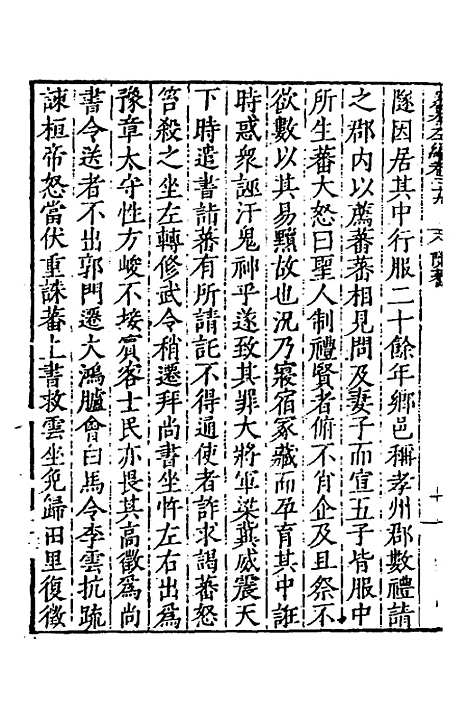 隧因居其中行服二十餘年鄉邑稱孝州郡數禮請
之郡内以薦蕃蕃相見問及妻子而宣五子皆服中
所生蕃大怒曰聖人制禮賢者俯不肖企及且祭不
欲數以其易黷故也況乃寢宿冢藏而孕育其中誑
時惑衆誣汗鬼神乎遂致其罪大將軍梁冀威震天
下時遣書詣蕃有所請託不得通使者詐求謁蕃怒
笞殺之坐左轉修武令稍遷拜尚書坐忤左右出爲
豫章太守性方峻不接賓客士民亦畏其高徵爲尚
書令送者不出郭門遷大鴻臚會白馬令李雲抗疏
諫桓帝怒當伏重誅蕃上書救雲坐免歸田里復徵